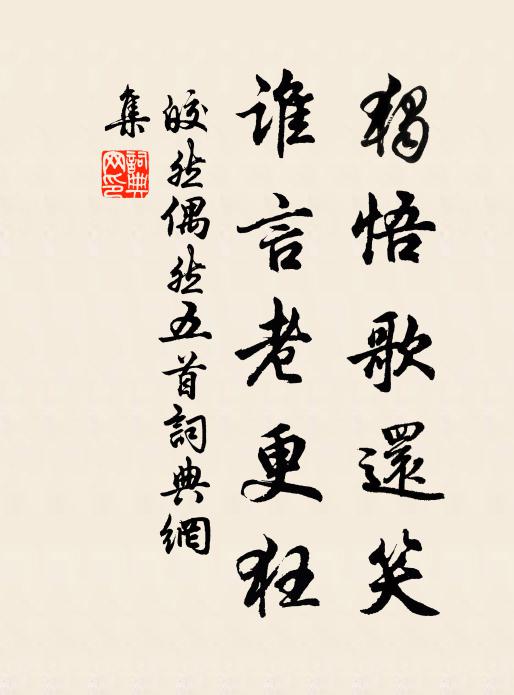 獨悟歌還笑
誰言老更狂
皎然偶然五首詞典網
集
詞典
网印